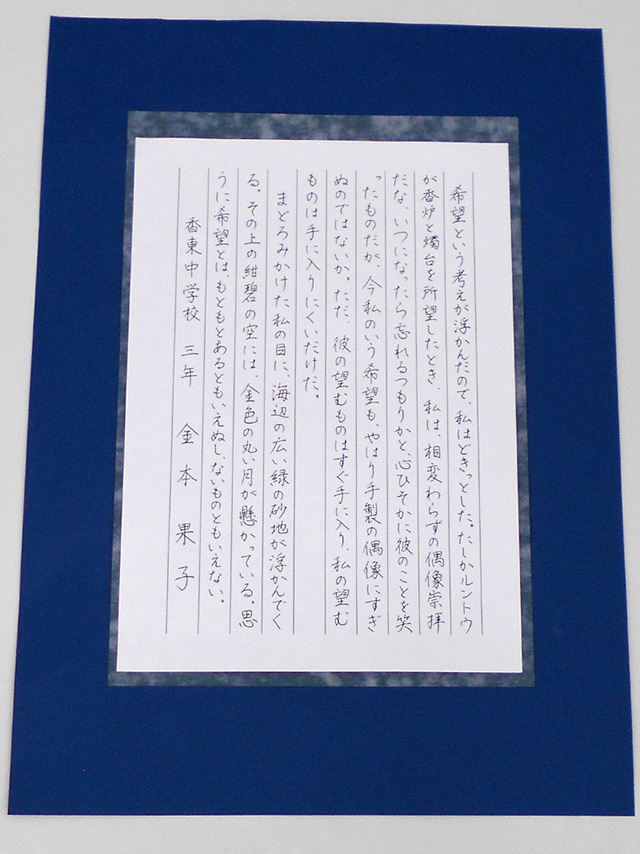 希望という考えが浮かんだので、私はどきっとした。たしかルントウ
が香炉と燭台を所望したとき、私は、相変わらずの偶像崇拝
だな、いつになったら忘れるつもりかと、心ひそかに彼のことを笑
ったものだが、今私のいう希望も、やはり手製の偶像にすぎ
ぬのではないか。ただ、彼の望むものはすぐ手に入り、私の望む
ものは手に入りにくいだけだ。
まどろみかけた私の目に、海辺の広い緑の砂地が浮かんでく
る。その上の紺碧の空には、金色の丸い月が懸かっている。思
うに希望とは、もともとあるともいえぬし、ないものともいえない。
香東中学校 三年 金本果子